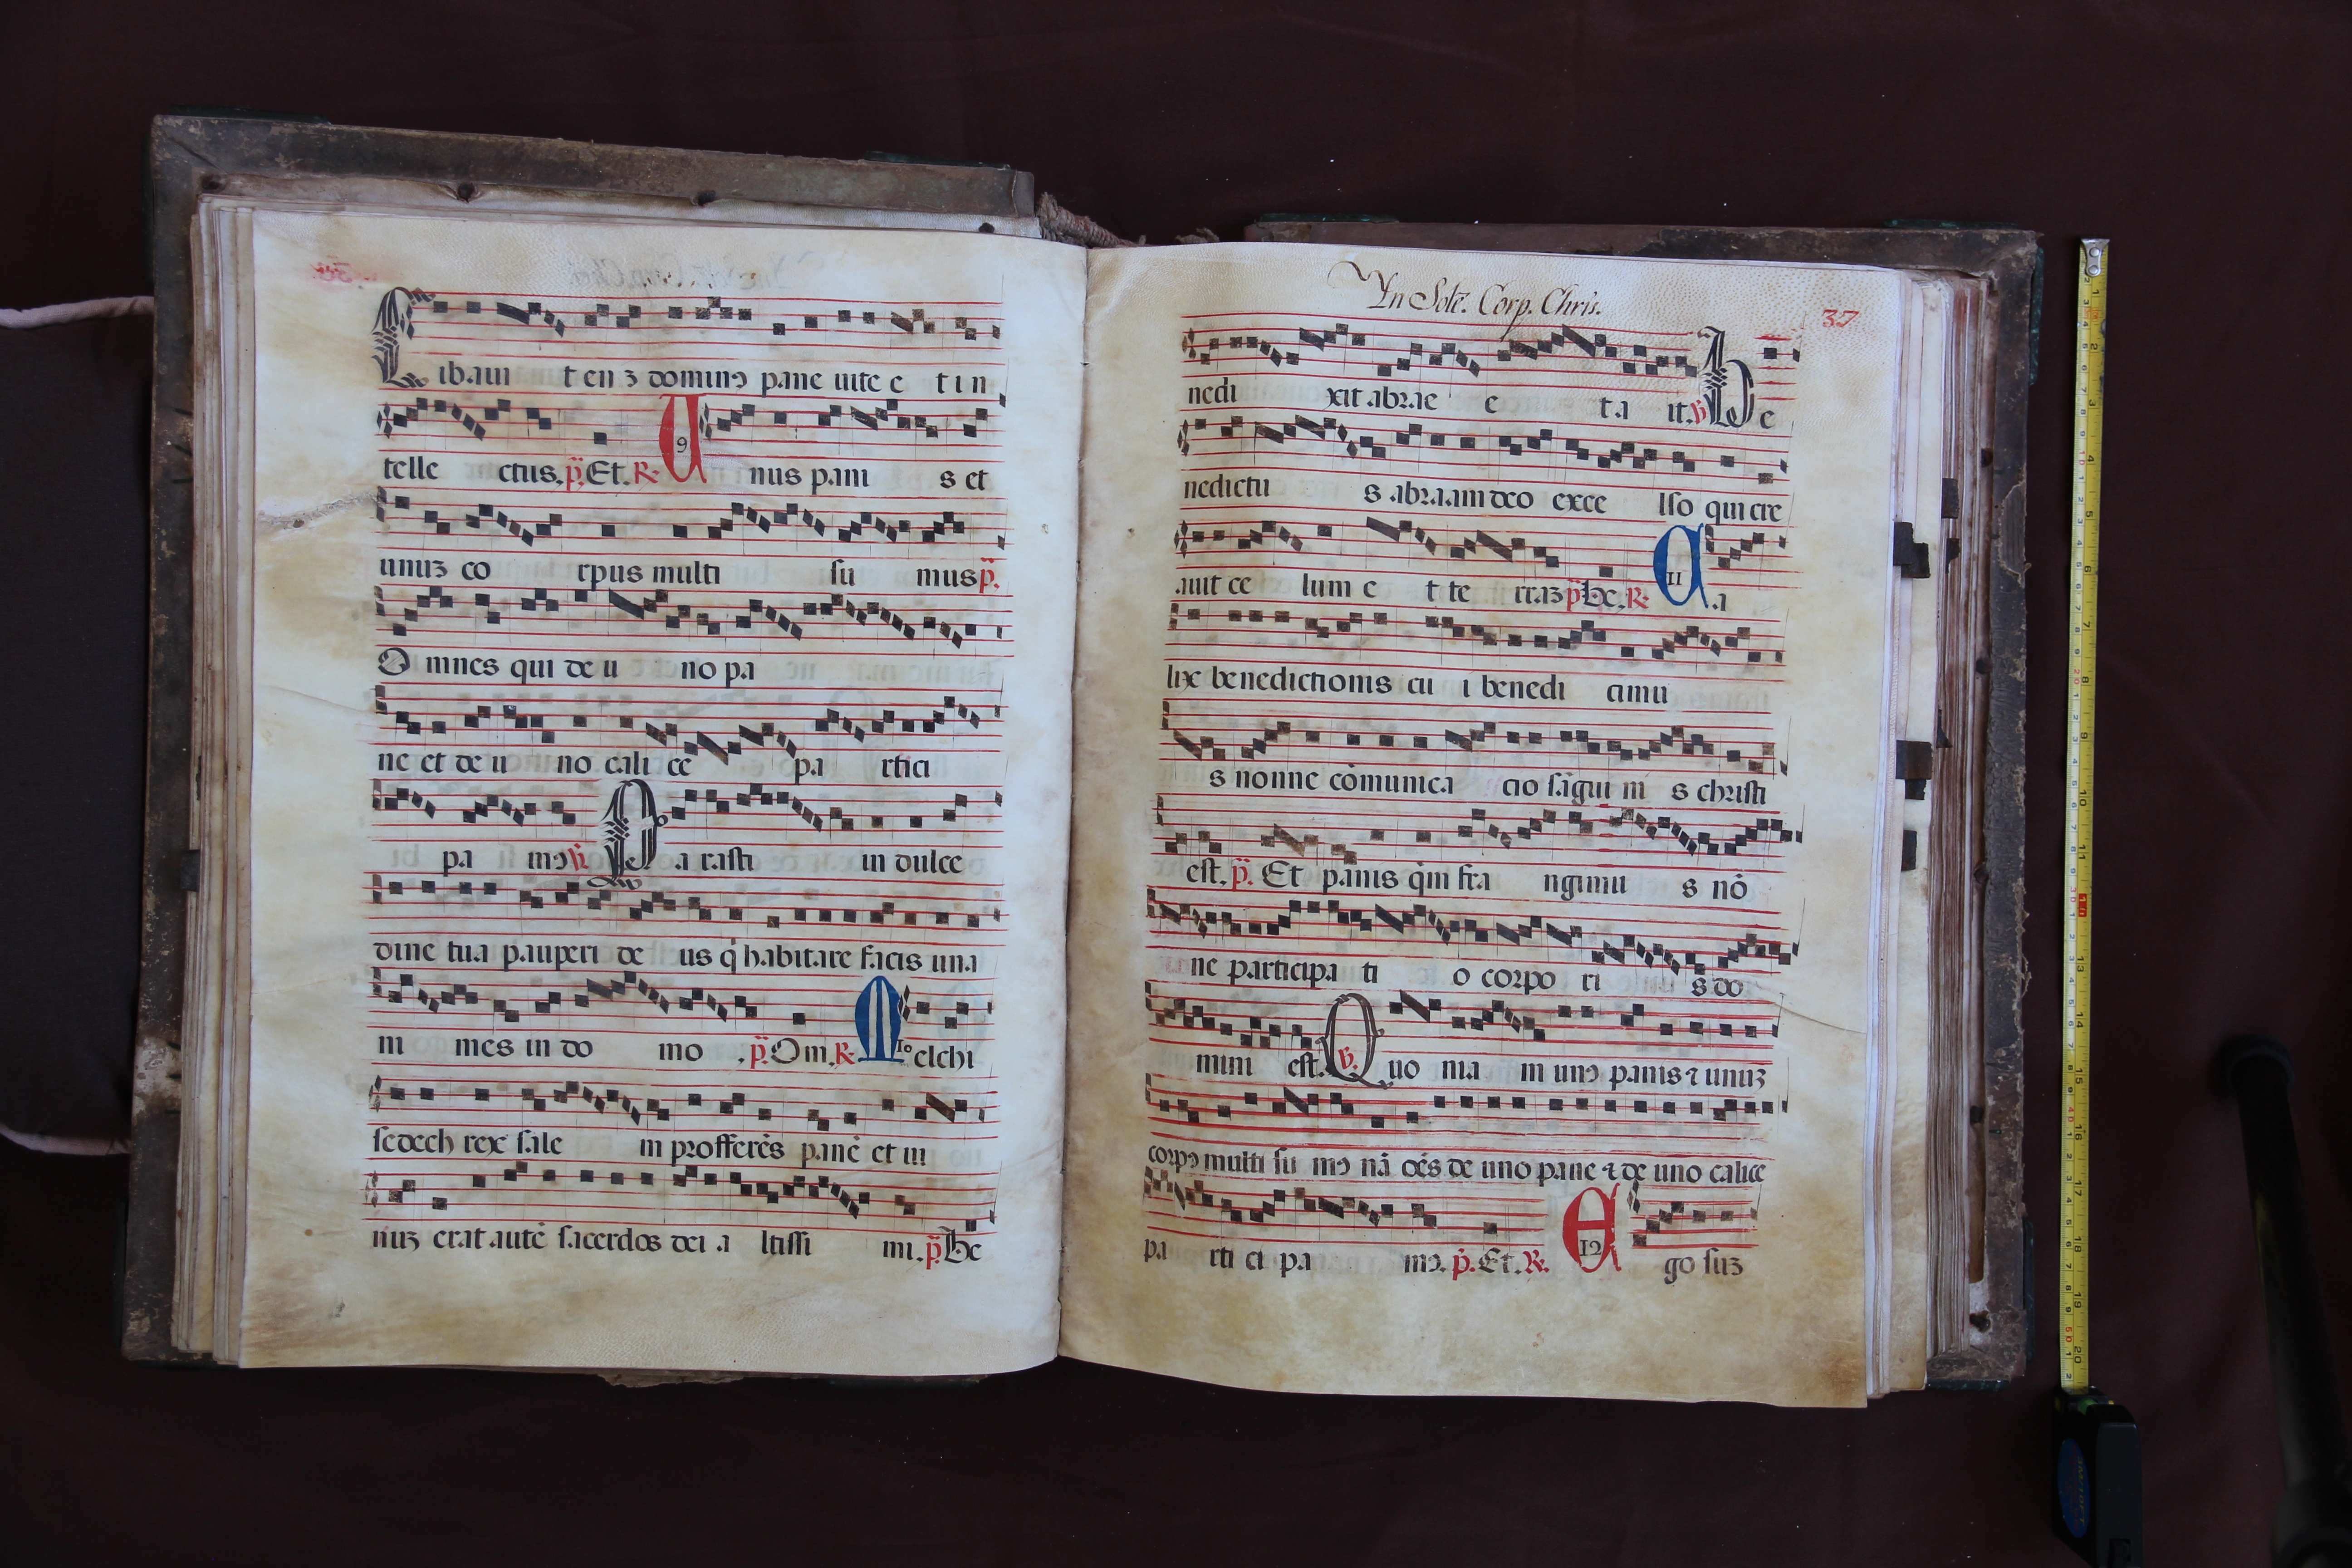 Libauit eu3 dominꝰ pane uite et in
tellectus. p̃. Et. R. 9 Unus panis et
unu3 corpus multi sumus p̃.
Omnes qui de uno pa
ne et de uno calice partici
pamꝰ ℣. Parasti in dulce
dine tua pauperi deus q̇ habitare facis una
nimes in domo. p̃. Om. R. 10 Melchi
sedech rex salem profferẽs panẽ et ui
nu3 erat autẽ sacerdos dei altissimi. p̃. Be
Yn Solẽ. Corp. Chris.
37
nedixit abrae et ait. ℣. Be
nedictus abraam deo excelso qui cre
auit celum et terra3 p̃. Be. R. 11 Ca
lix benedictionis cui benedicimu
s nonne cõmunicacio sãguinis christi
est. p̃. Et panis q̇m frangimus nõ
ne participatio corporis do
mini est. ℣. Quoniam unꝰ panis ⁊ unu3
corpꝰ multi sumꝰ nã oẽs de uno pane ⁊ de uno calice
participamꝰ. p̃. Et. R. 12 Ego su3